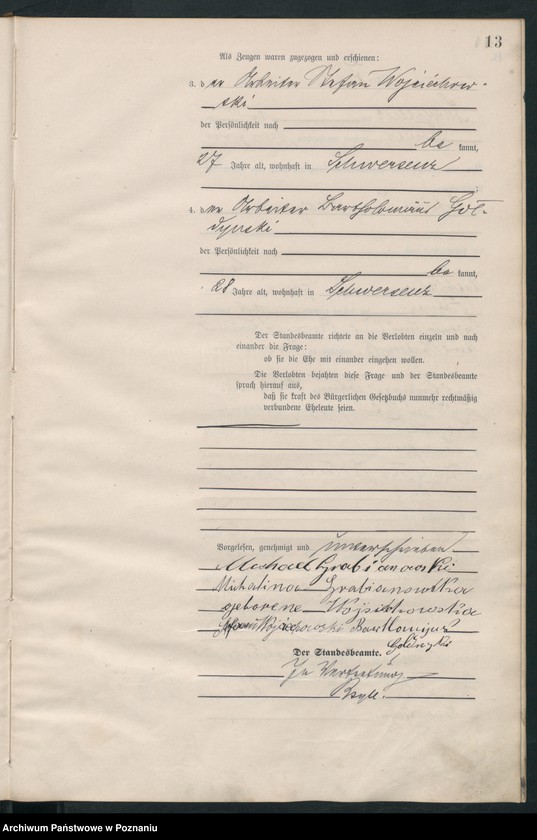 13
Als Zeugen waren zugezogen und erschienen:
3. der Arbeiter Stefan Wojciechow-
ski
der Persönlichkeit nach
be kannt,
27 Jahre alt, wohnhaft in Schwersenz
;
4. der Arbeiter Bartholomäus Gol-
dynski
der Persönlichkeit nach
be kannt,
28 Jahre alt, wohnhaft in Schwersenz
Der Standesbeamte richtete an die Verlobten einzeln und nach
einander die Frage:
ob sie die Ehe mit einander eingehen wollen.
Die Verlobten bejahten diese Frage und der Standesbeamte
sprach hierauf aus,
daß sie kraft des Bürgerlichen Gesetzbuchs nunmehr rechtmäßig
verbundene Eheleute seien.
Vorgelesen, genehmigt und unterschrieben
Michael Grabianowski
Michalina Grabianowska
geborene Wojciechowska
Wojciechowski
Der Standesbeamte.
In Vertretung
Archiwum Państwowe w Poznaniu